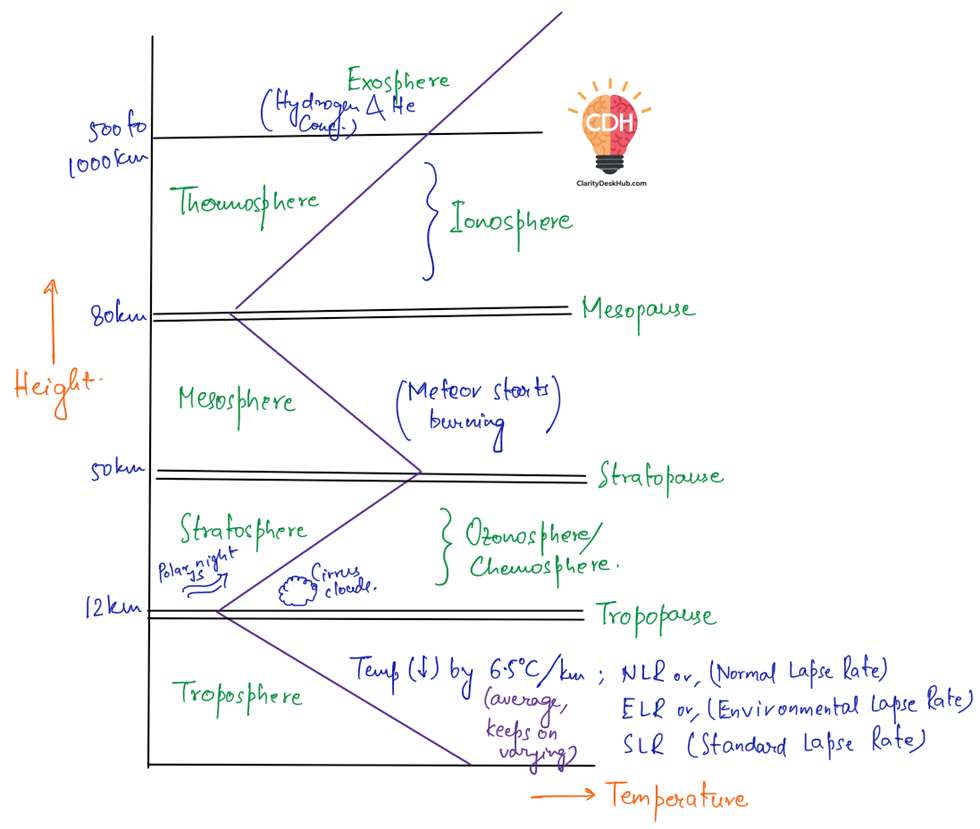 Exosphere
(Hydrogen & He
Conc.)
500 to
1000km
CDH
ClarityDeskHub.com
Thermosphere
Ionosphere
80km
Mesopause
Height.
Mesosphere
(Meteor starts
burning)
50km
Stratopause
Stratosphere
Ozonosphere/
Chemosphere.
Polar night
Cirrus
clouds.
12km
Tropopause
Troposphere
Temp (↓) by 6.5°C/km ; NLR or, (Normal Lapse Rate)
(average,
keeps on
varying)
ELR or, (Environmental Lapse Rate)
SLR (Standard Lapse Rate)
Temperature